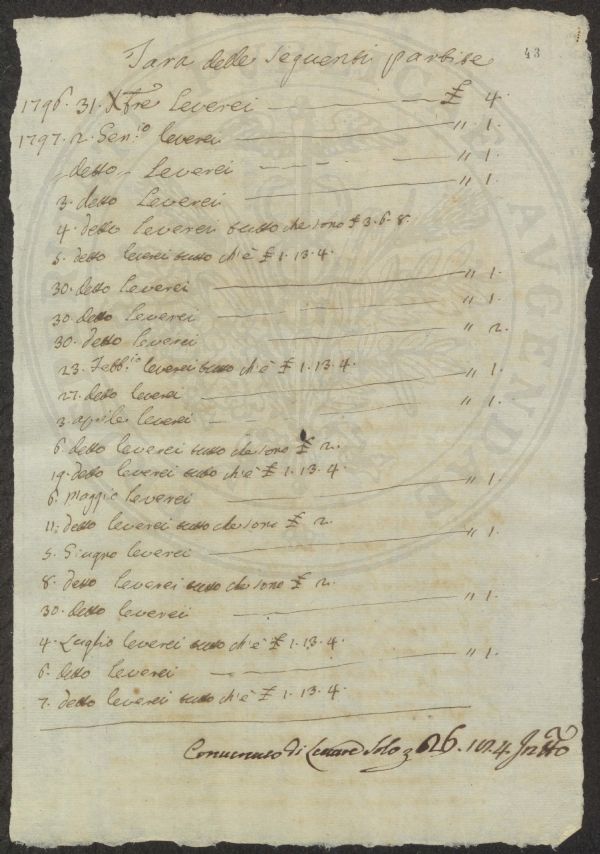 43
Tara delle seguenti partite
1796. 31. Xbre leverei — £ 4.
1797. 2. Gen:io leverei — " 1.
detto leverei — " 1.
3. detto Leverei — " 1.
4. detto leverei tutto che sono £ 3.6.8.
5. detto leverei tutto ch'è £ 1.13.4.
30. detto leverei — " 1.
30. detto leverei — " 1.
30. detto leverei — " 2.
23. Febb:io leverei tutto ch'è £ 1.13.4.
27. detto leverei — " 1.
3. aprile leverei — " 1.
6. detto leverei tutto che sono £ 2.
19. detto leverei tutto ch'è £ 1.13.4.
6. Maggio leverei — " 1.
11. detto leverei tutto che sono £ 2.
5. Giugno leverei — " 1.
8. detto leverei tutto che sono £ 2.
30. detto leverei — " 1.
4. Luglio leverei tutto ch'è £ 1.13.4.
6. detto leverei — " 1.
7. detto leverei tutto ch'è £ 1.13.4.
di Levare Solo
AUGENDAE